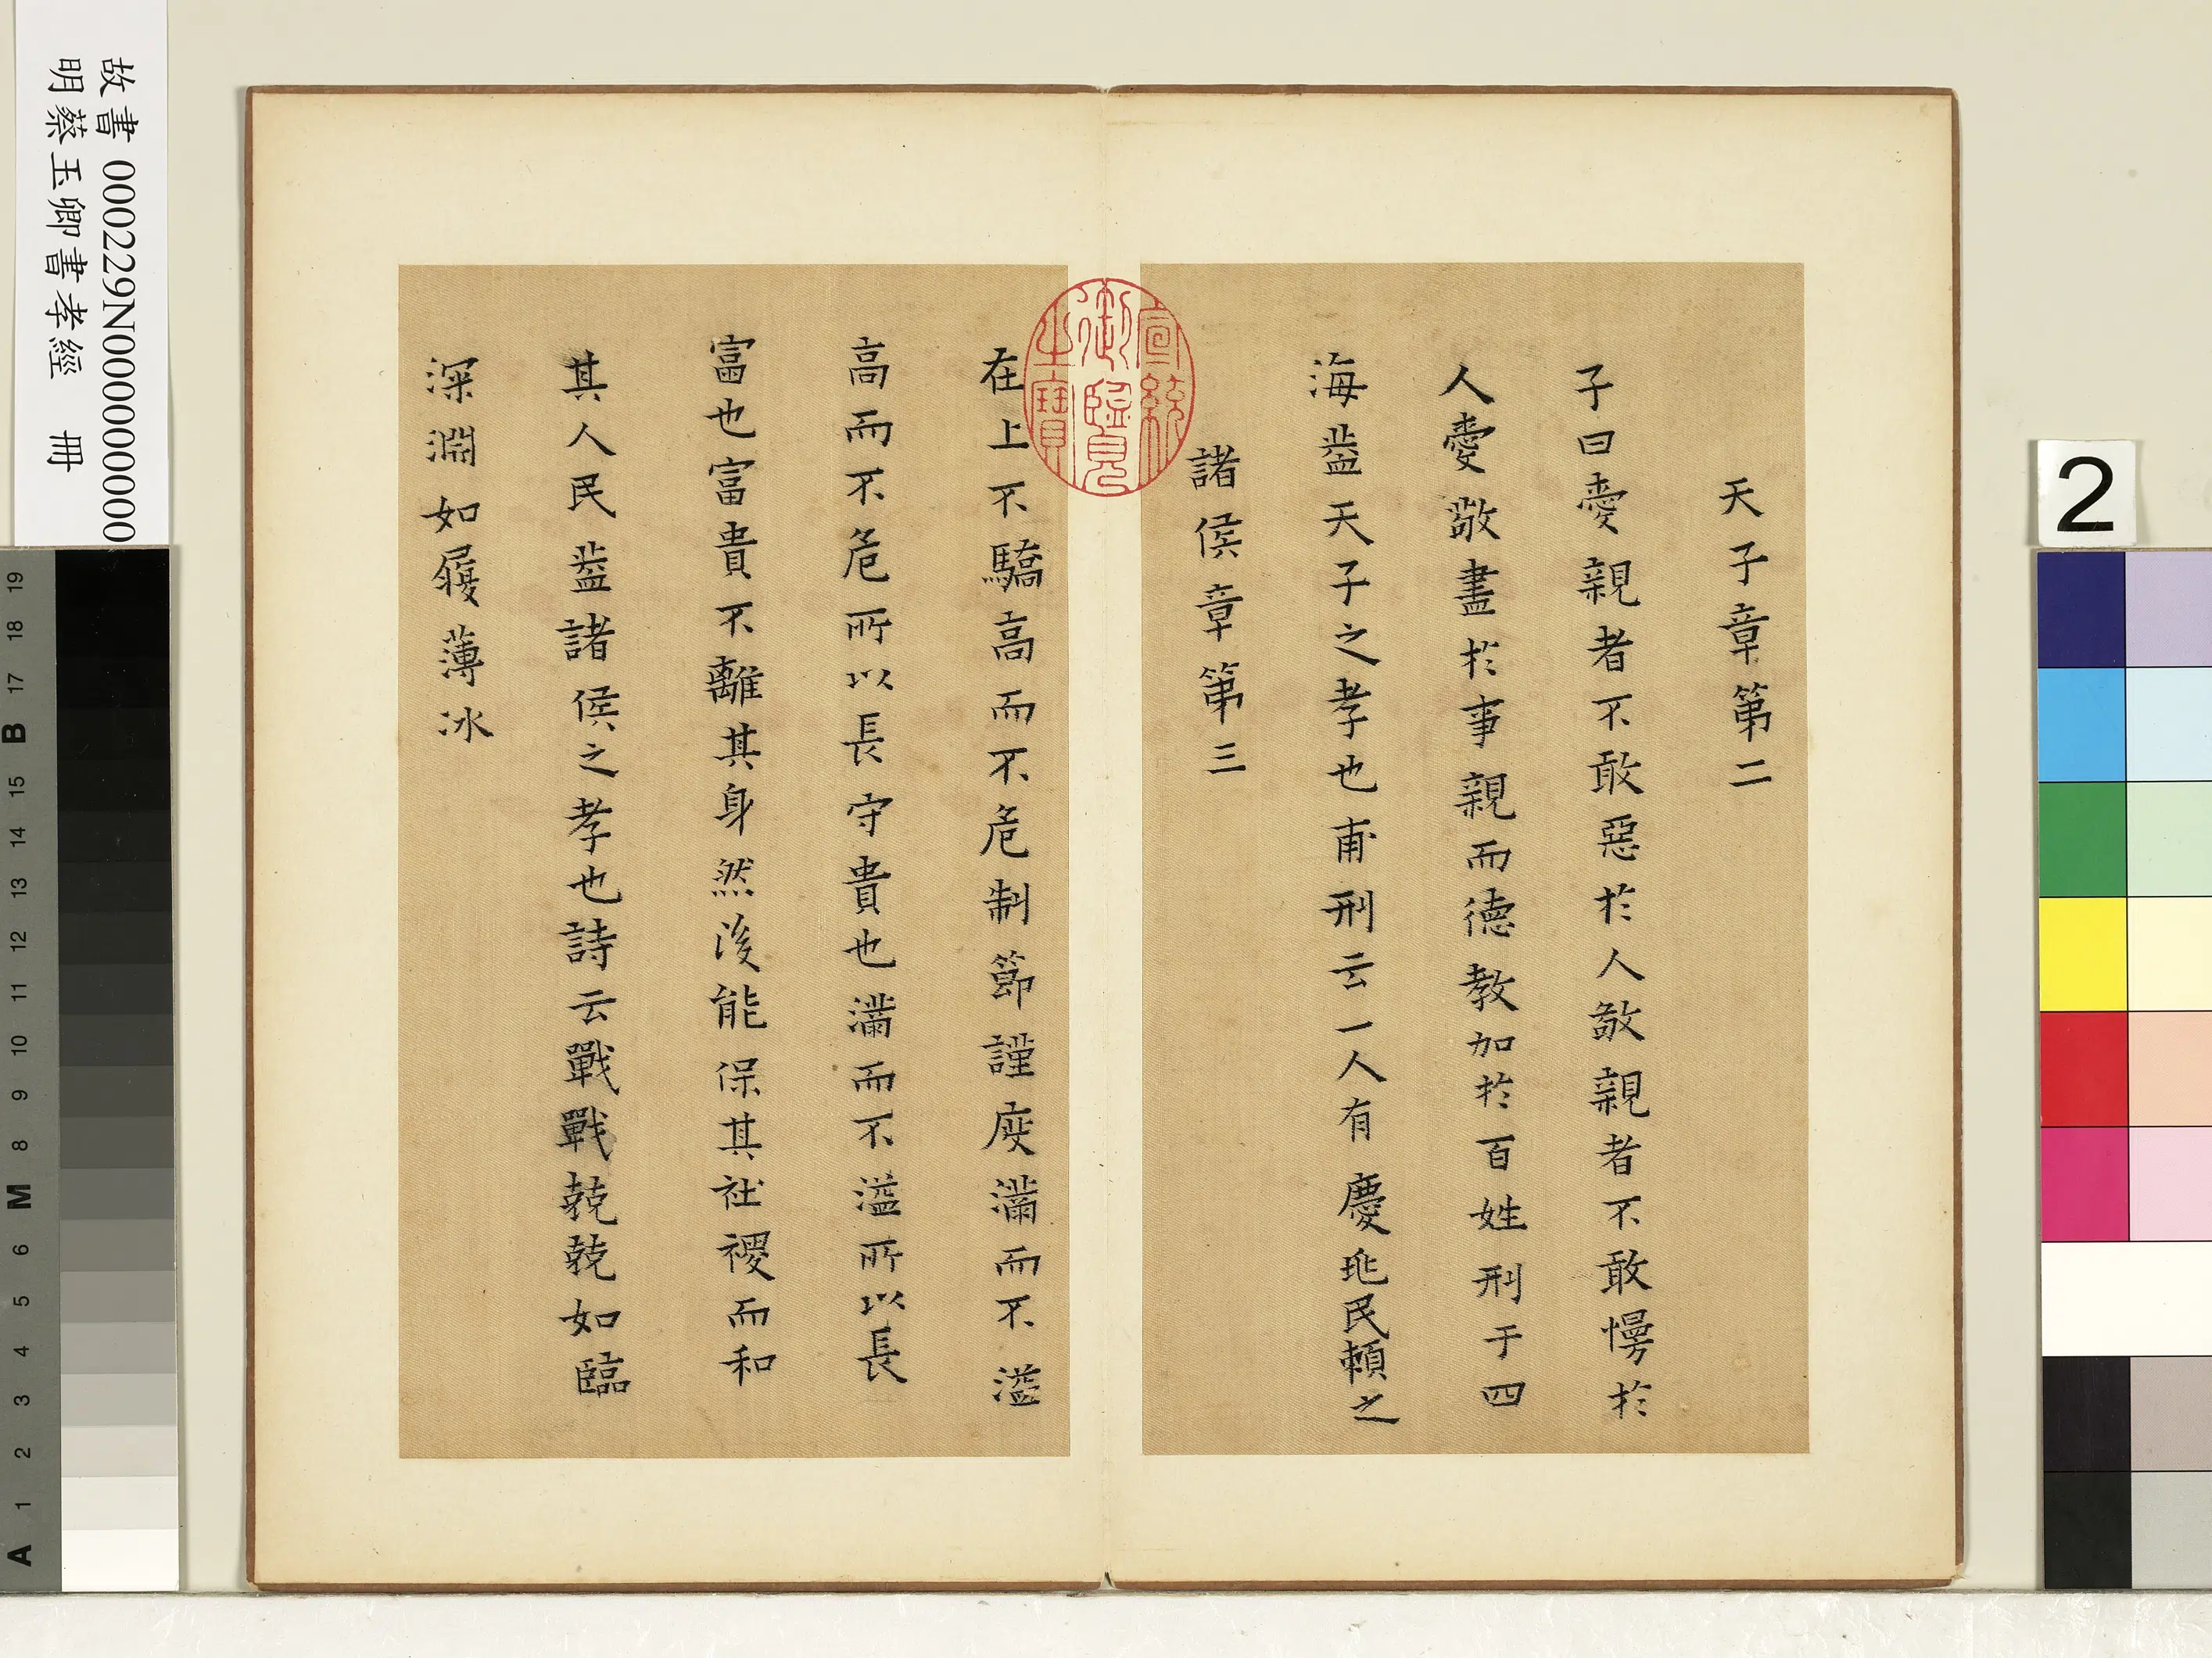 故書 000229N000000000
明蔡玉卿書孝經 冊
天子章第二
子曰愛親者不敢惡於人敬親者不敢慢於
人愛敬盡於事親而德教加於百姓刑于四
海葢天子之孝也甫刑云一人有慶兆民賴之
諸侯章第三
宣統
御覽
之寶
在上不驕高而不危制節謹度滿而不溢
高而不危所以長守貴也滿而不溢所以長
富也富貴不離其身然後能保其社稷而和
其人民葢諸侯之孝也詩云戰戰兢兢如臨
深淵如履薄冰
2
A 1 2 3 4 5 6 M 8 9 10 11 12 13 14 15 B 17 18 19